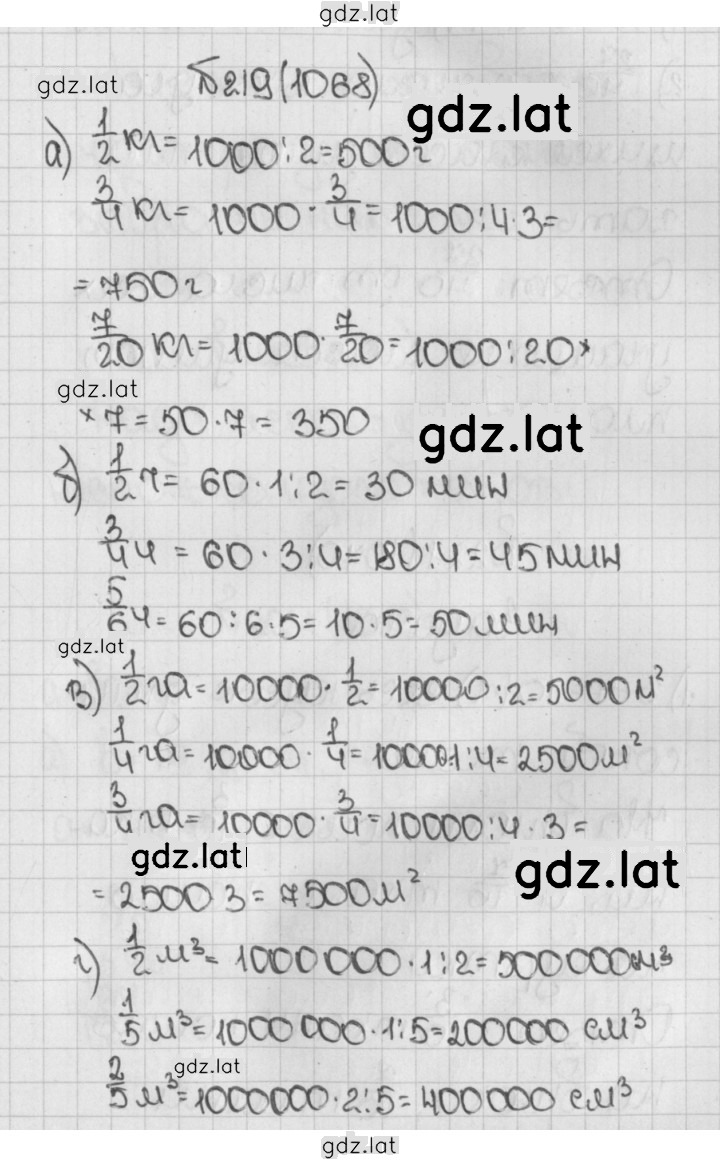 gdz.lat
gdz.lat №219(1068) gdz.lat
а) 1/2 кг= 1000:2=500г
3/4 кг= 1000 · 3/4 = 1000:4·3=
=750г
7/20 кг= 1000· 7/20= 1000:20×
gdz.lat
×7=50·7= 350 gdz.lat
б) 1/2 ч= 60·1:2= 30 мин
3/4 ч = 60· 3:4=180:4=45мин
5/6 ч= 60:6·5=10·5=50мин
gdz.lat
в) 1/2 га=10000· 1/2= 10000:2=5000м²
1/4 га=10000 · 1/4= 10000·1:4=2500м²
3/4 га= 10000· 3/4=10000:4·3=
gdz.lat gdz.lat
= 2500 3= 7500м²
г) 1/2 м³= 1000000·1:2=500000см³
1/5 м³=1000000·1:5=200000 см³
gdz.lat
2/5 м³=1000000·2:5=400000 см³
gdz.lat